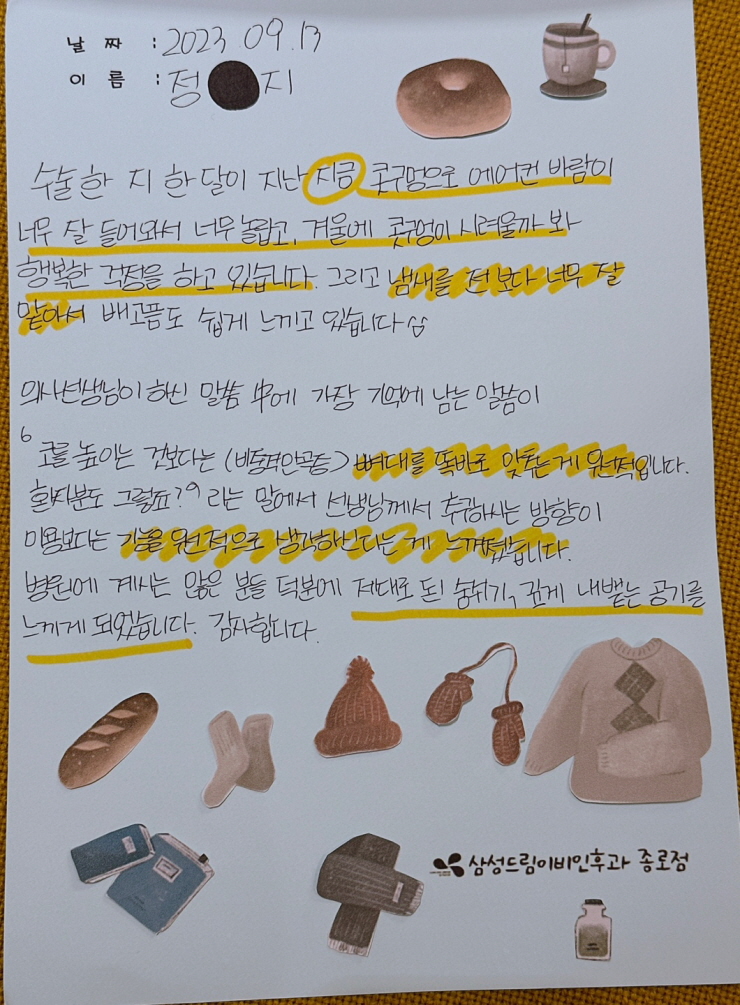 날 짜 : 2023 09.13
이 름 : 정 지
수술한 지 한 달이 지난 지금 콧구멍으로 에어컨 바람이
너무 잘 들어와서 너무 놀랍고, 겨울에 콧구멍이 시려울까 봐
행복한 걱정을 하고 있습니다. 그리고 냄새를 전보다 너무 잘
맡아서 배고픔도 쉽게 느끼고 있습니다
의사선생님이 하신 말씀 中에 가장 기억에 남는 말씀이
코를 높이는 것보다는 (비중격만곡증) 뼈대를 똑바로 맞추는 게 원칙입니다.
환자분도 그렇죠?" 라는 말에서 선생님께서 추구하시는 방향이
미용보다는 기능을 원칙적으로 생각하신다는 게 느껴졌습니다.
병원에 계시는 많은 분들 덕분에 제대로 된 숨쉬기, 깊게 내뱉는 공기를
느끼게 되었습니다. 감사합니다.
삼성드림이비인후과 종로점